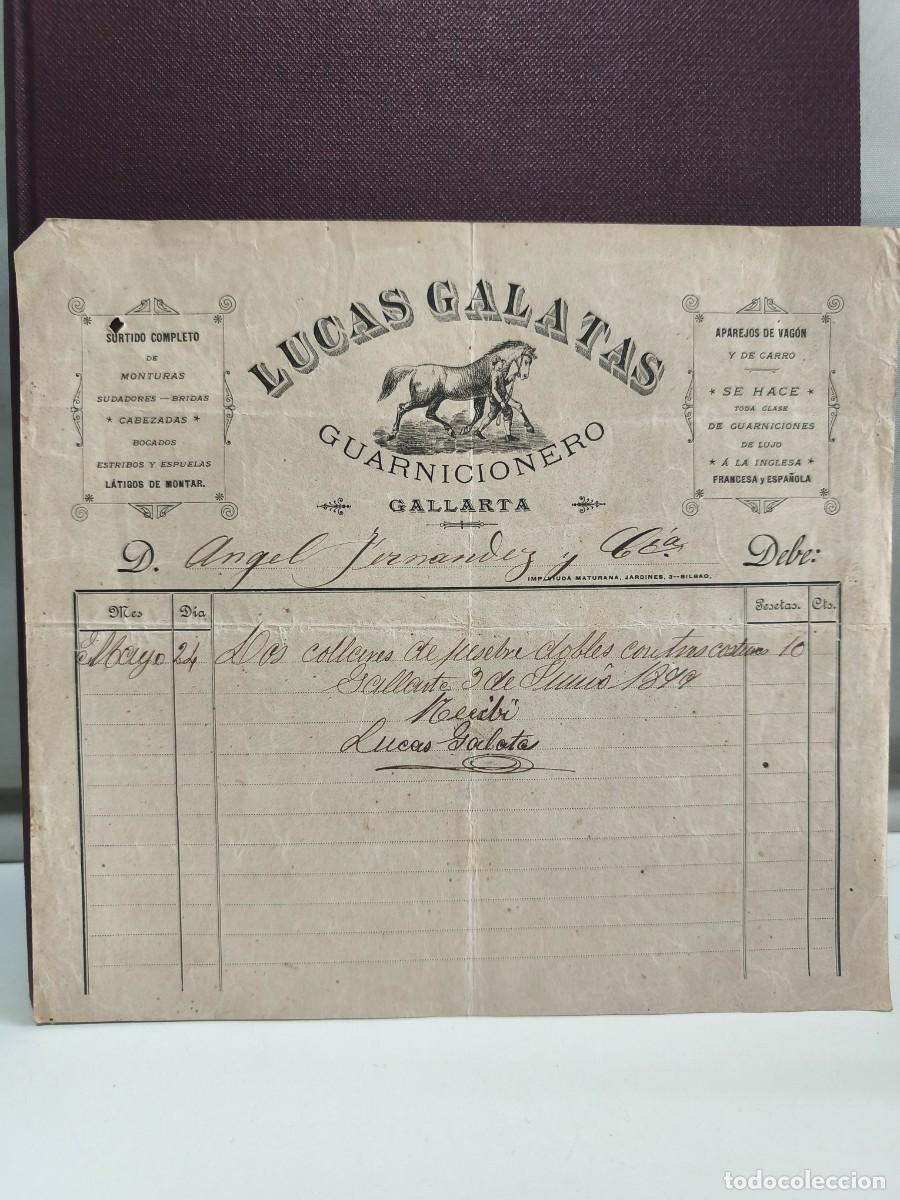 LUCAS GALATAS
GUARNICIONERO
GALLARTA
SURTIDO COMPLETO
DE
MONTURAS
SUDADORES — BRIDAS
* CABEZADAS *
BOCADOS
ESTRIBOS Y ESPUELAS
LÁTIGOS DE MONTAR.
APAREJOS DE VAGÓN
Y DE CARRO
* SE HACE *
TODA CLASE
DE GUARNICIONES
DE LUJO
* Á LA INGLESA *
FRANCESA y ESPAÑOLA
D. Angel Fernandez y Cia. Debe:
IMP. VIUDA MATURANA, JARDINES, 3--BILBAO.
Mes Dia Pesetas. Cts.
Mayo 24 Dos collares de pesebre dobles con tres costuras 10
Gallarta 3 de Junio
Recibi
Lucas Galata
todocoleccion